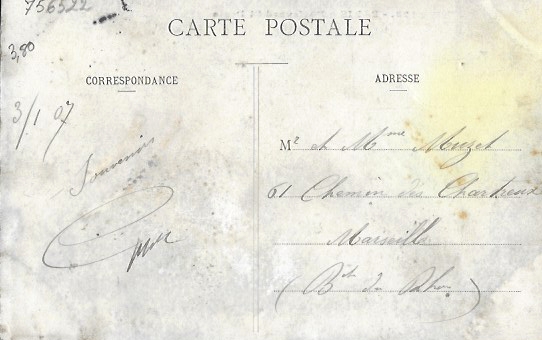 756522
CARTE POSTALE
3,80
CORRESPONDANCE
ADRESSE
3/1 07
Souvenirs
Mr et Mme Muzet
61 Chemin des Chartreux
Marseille
(Bch du Rhône)